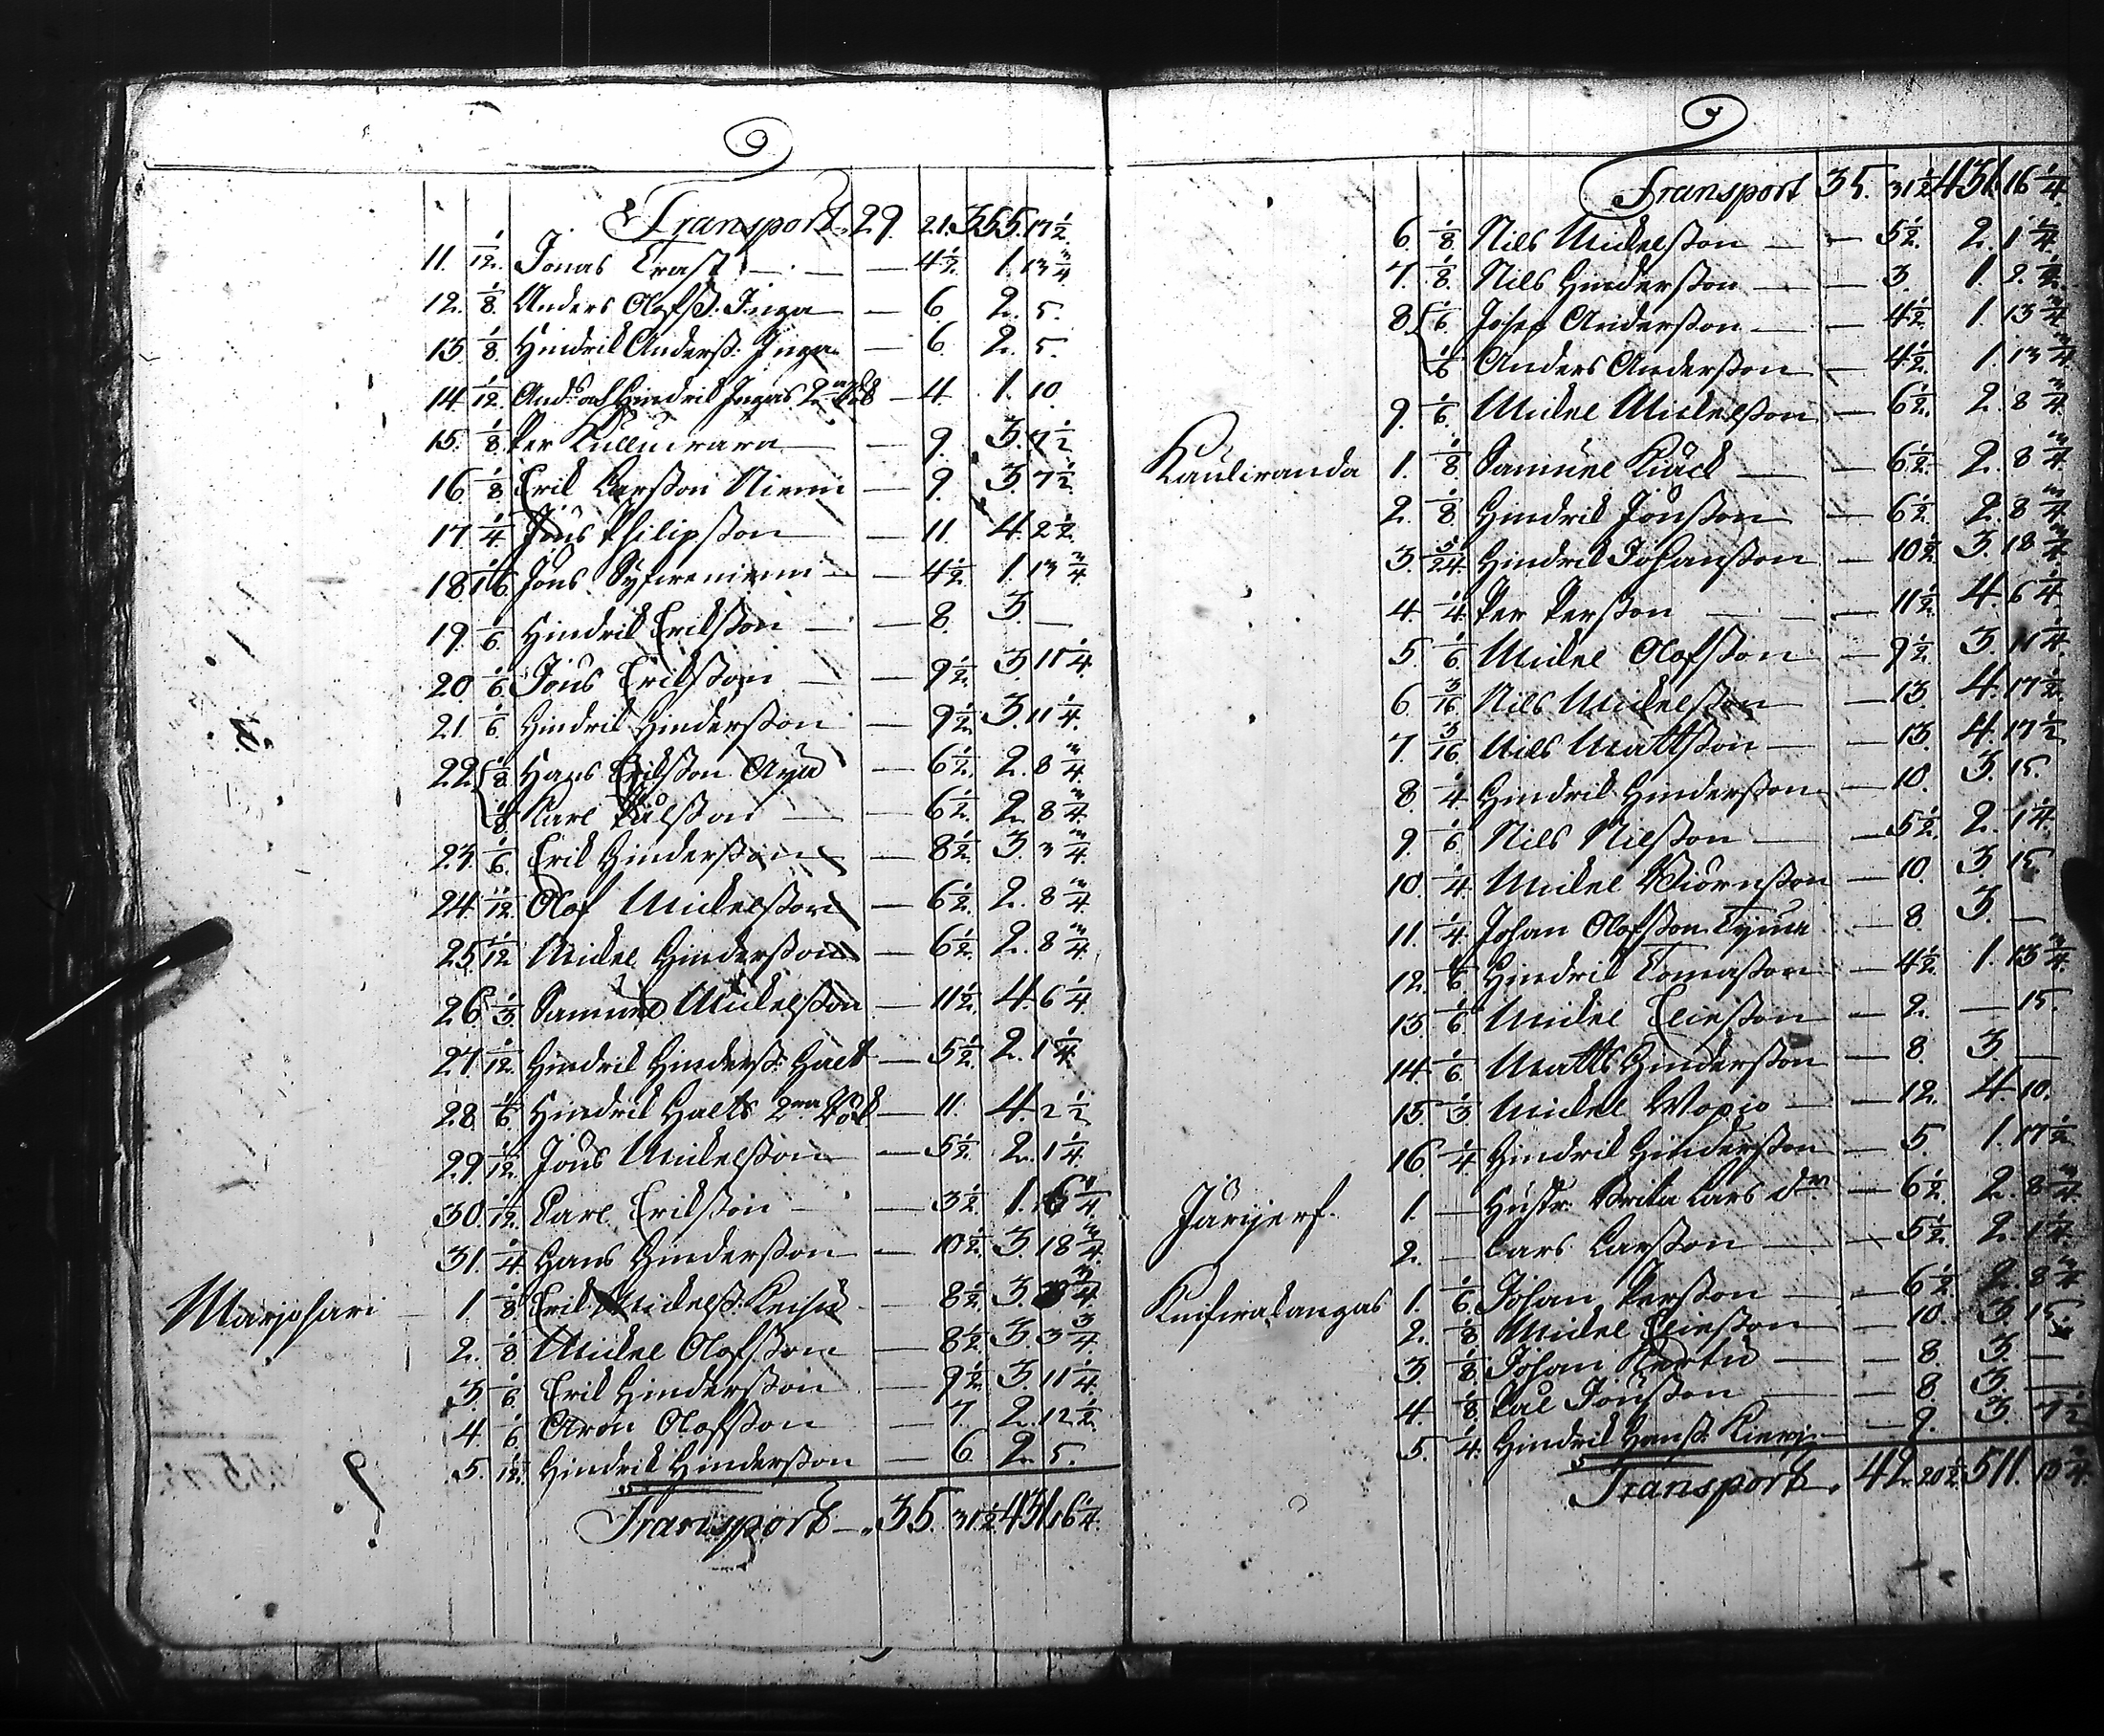 Transport 29. 21. 355. 17 1/2.
11. 1/12. Jonas Crast — 4 1/2. 1. 13 3/4
12. 1/8. Anders Olofss. Inga — 6. 2. 5.
13. 1/8. Hindrik Anderss: Inga — 6. 2. 5.
14. 1/12. And:s och Hindrik Ingas 2:ra — 4. 1. 10.
15. 1/8. Per Kulluvara — 9. 3. 7 1/2
16. 1/8 Erik Larsson Niemi — 9. 3. 7 1/2.
17. 1/4. Jöns Philipsson — 11. 4. 2 1/2.
18. 1/6. Jöns — 4 1/2. 1. 13 3/4.
19. 1/6 Hindrik Eriksson — 8. 3. —
20. 1/6. Jöns Eriksson — 9 1/2. 3. 11 1/4.
21. 1/6 Hindrik Hindersson — 9 1/2. 3. 11 1/4.
22. 1/8. Hans Eriksson — 6 1/2. 2. 8 3/4.
1/8. Carl Pålsson — 6 1/2. 2. 8 3/4.
23. 1/6. Erik Hindersson — 8 1/2. 3. 3 3/4.
24. 1/12. Olof Mickelsson — 6 1/2. 2. 8 3/4.
25. 1/12. Mickel Hindersson — 6 1/2. 2. 8 3/4.
26. 1/3. Samuel Mickelsson — 11 1/2. 4. 6 1/4
27. 1/12. Hindrik Hinderss: Halt — 5 1/2. 2. 1 1/4.
28. 1/6 Hindrik Halts 2:ra — 11. 4. 2 1/2
29. 1/12. Jöns Mickelsson — 5 1/2. 2. 1 1/4.
30. 1/12. Carl Eriksson — 3 1/2. 1. 6 1/4.
31. 1/4 Hans Hindersson — 10 1/2. 3. 18 3/4.
Marjosari — 1 1/8 Erik Mickelss: — 8 1/2. 3. 3 3/4.
2. 1/8. Mickel Olofsson — 8 1/2. 3. 3 3/4.
3. 1/6 Erik Hindersson — 9 1/2. 3. 11 1/4.
4. 1/6. Aron Olofsson — 7. 2. 12 1/2.
5. 1/12. Hindrik Hindersson — 6. 2. 5.
Transport — 35. 31 1/2. 431. 16 1/4.
Transport 35. 31 1/2. 431. 16 1/4.
6. 1/8 Nils Mickelsson — 5 1/2. 2. 1 1/4
7. 1/8. Nils Hindersson — 3. 1. 2 1/2.
8 1/6. Josef Andersson — 4 1/2. 1. 13 3/4
1/6 Anders Andersson — 4 1/2. 1. 13 3/4
9. 1/6. Mickel Mickelsson — 6 1/2. 2. 8 3/4.
Kauliranda 1. 1/8 Samuel Kuick — 6 1/2. 2. 8 3/4.
2. 1/8. Hindrik Jönsson — 6 1/2. 2. 8 3/4
3. 5/24. Hindrik Johansson — 10 1/2. 3. 18 3/4.
4. 1/4. Per Persson — 11 1/2. 4. 6 1/4
5. 1/6 Mickel Olofsson — 9 1/2. 3. 11 1/4.
6. 3/16 Nils Mickelsson — 13. 4. 17 1/2.
7. 3/16. Nils Mattsson — 13. 4. 17 1/2
8. 1/4 Hindrik Hindersson — 10. 3. 15.
9. 1/6 Nils Nilsson — 5 1/2. 2. 1 1/4.
10. 1/4. Mickel Biörnsson — 10. 3. 15.
11. 1/4. Johan Olofsson — 8. 3. —
12. 1/6 Hindrik Tomasson — 4 1/2. 1. 13 3/4.
13. 1/6 Mickel Eliesson — 2. — 15.
14. 1/6. Matts Hindersson — 8. 3. —
15. 1/3 Mickel Wopio — 12. 4. 10.
16. 1/4 Hindrik Hindersson — 5. 1. 17 1/2
Jarijerf. 1. — Hustr: Brita Lars d:r — 6 1/2. 2. 8 3/4.
2. — Lars Larsson — 5 1/2. 2. 1 1/4.
Kuivakangas 1. 1/6. Johan Persson — 6 1/2. 2. 8 3/4
2. 1/8 Mickel Eliesson — 10. 3. 15.
3. 1/8. Johan — 8. 3. —
4. 1/8. Pål Jönsson — 8. 3. —
5. 1/4. Hindrik Hanss: — 9. 3. 7 1/2
Transport. 42. 20 1/2. 511. 13 3/4.